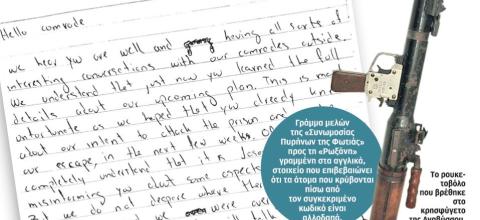 Hello comrade
we hear you are well and having all sorts of
interesting conversations with our comrades outside.
We understand that just now you learned the full
details about our upcoming plan. This is most
unfortunate as we hoped that you already knew
about our intent to attack the prison
our escape, in the next few weeks.
completely understand that it is
misinforming you about some aspects
we do not where
were
Γράμμα μελών
της «Συνωμοσίας
Πυρήνων της Φωτιάς»
προς τη «Ρωξάνη»
γραμμένη στα αγγλικά,
στοιχείο που επιβεβαιώνει
ότι τα άτομα που κρύβονται
πίσω από
τον συγκεκριμένο
κωδικό είναι
αλλοδαπά.
Το ρουκε-
τοβόλο
που βρέθηκε
στο
κρησφύγετο
της Αναβύσσου